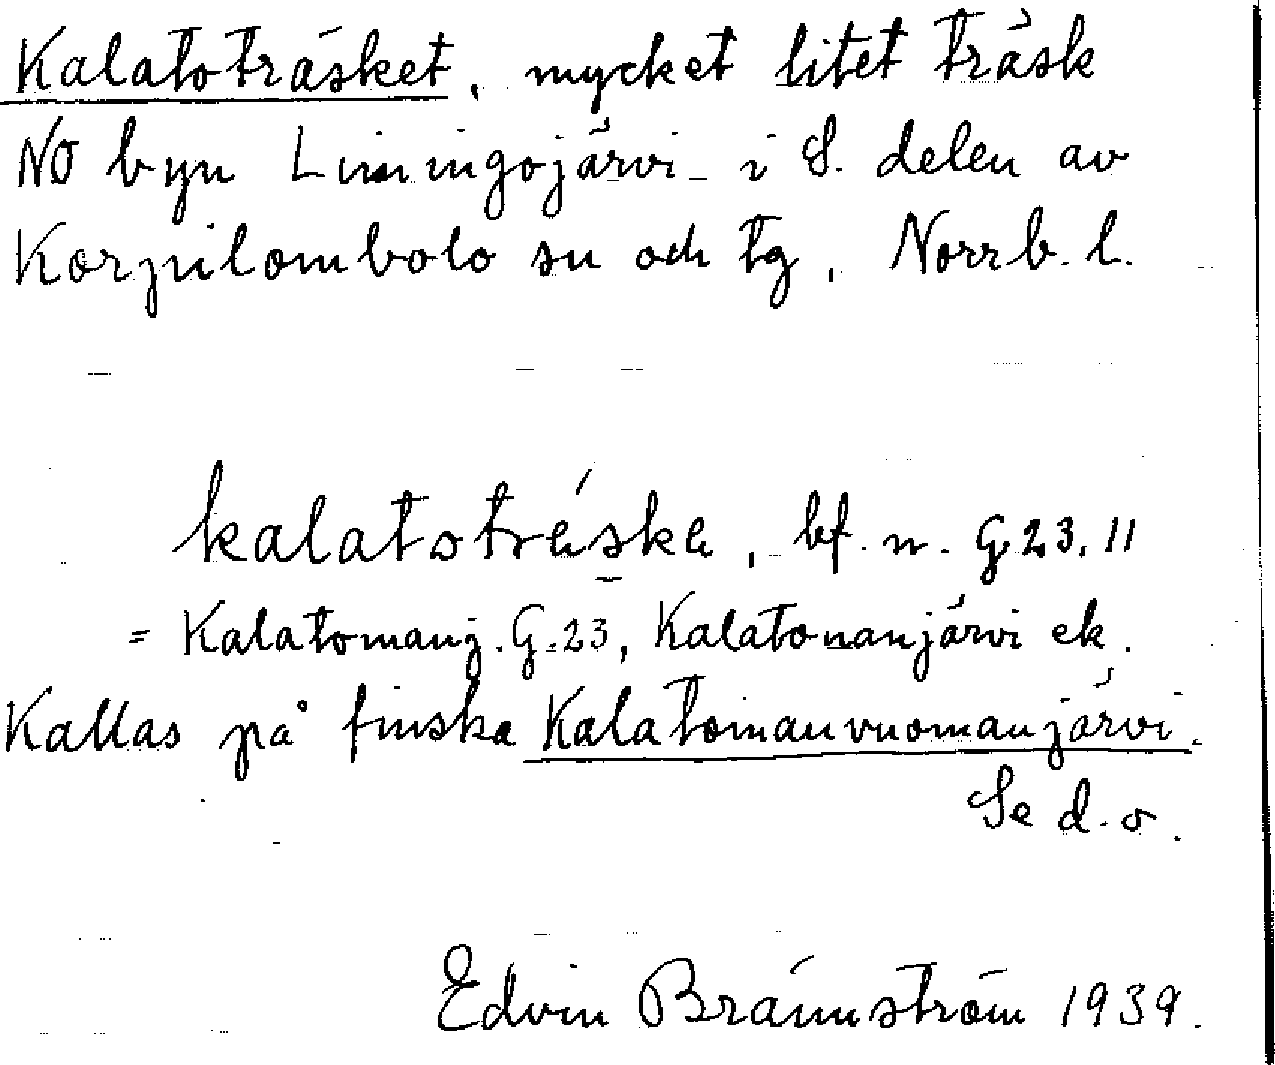 Kalatoträsket, mycket litet träsk
NO byn Limingojärvi i S. delen av
Korpilombolo sn och tg, Norrb. l.
kalatoträska, bf. n. G.23.11
= Kalatomanj. G.23, Kalatonanjärvi ek.
Kallas på finska Kalatomanvuomanjärvi.
Se d. o.
Edvin Brännström 1939.